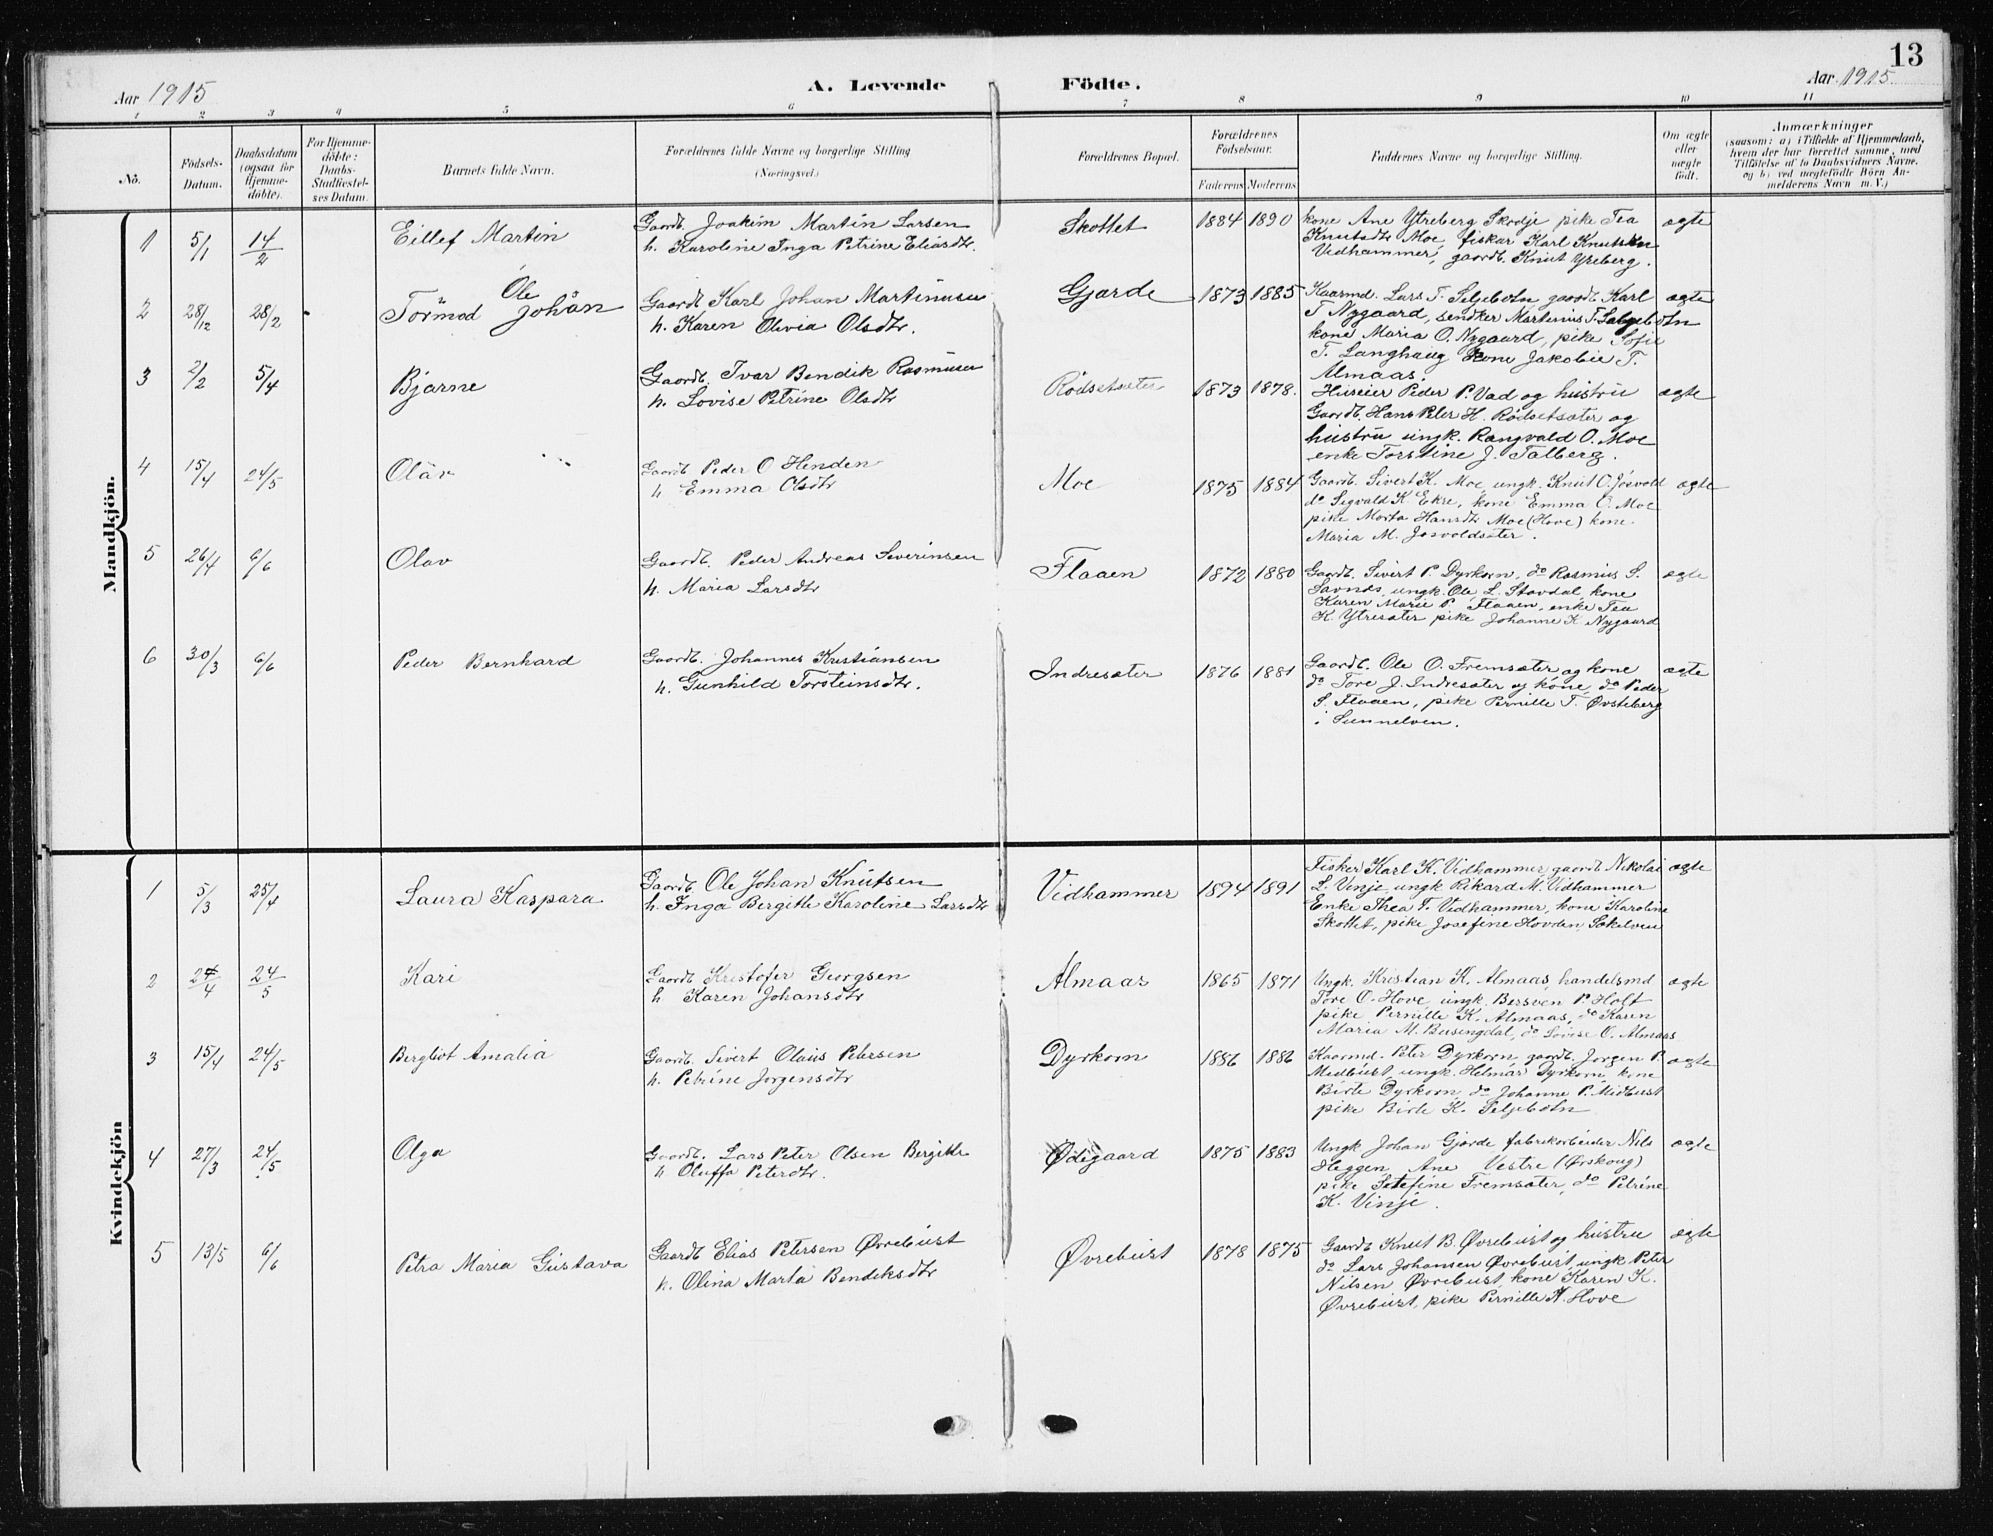 13
Aar 1915
A. Levende
Födte.
Aar 1915
1 2 3 4 5 6 7 8 9 10 11
No.
Födsels-
Datum.
Daabsdatum
(ogsaa for
Hjemme-
döbte).
For Hjemme-
döbte:
Daabs-
Stadfæstel-
ses Datum.
Barnets fulde Navn.
Forældrenes fulde Navne og borgerlige Stilling
(Næringsvei.)
Forældrenes Bopæl.
Forældrenes
Födselsaar.
Faderens Moderens
Faddernes Navne og borgerlige Stilling.
Om ægte
eller
uægte
födt.
Anmærkninger
(saasom: a) i Tilfælde af Hjemmedaab,
hvem der har forrettet samme, med
Tilföielse af to Daabsvidners Navne.
og b) ved uægtefödte Börn An-
melderens Navn m.V.)
Mandkjön.
1 5/1 14/2 Eillef Martin
Gaardb. Joakim Martin Larsen
h. Karoline Inga Petrine Eliasdtr.
Skottet 1884 1890
kone Ane Ytreberg Skodje, pike Tea
Knutsdtr Moe, fisker Karl Knutsen
Vidhammer, gaardb. Knut Ytreberg.
ægte
2 28/12 28/2 Tormod Ole Johan
Gaardb Karl Johan Martinusen
h. Karen Olivia Olsdtr.
Gjærde 1873 1885
Kaarmd. Lars T. Seljebotn gaardb. Karl
T Nygaard, sendker Martinius T. Seljebotn
kone Maria O. Nygaard, pike Sofie
T. Langhaug kone Jakobie T.
Almaas.
ægte
3 2/2 5/4 Bjarne
Gaardb. Ivar Bendik Rasmusen
h. Lovise Petrine Olsdtr
Rödsetsæter 1873 1878.
Huseier Peder P. Vad og hustru
Gaardb. Hans Peter H. Rödsetsæter og
hustru ungk. Rangvald O. Moe
enke Torstine J. Talberg.
ægte
4 15/4 24/5 Olav
Gaardb Peder O Henden
h Emma Olsdtr
Moe 1875 1884
Gaardb. Sivert K. Moe, ungk. Knut O. Jösvold
do Sigvald K. Ekre, kone Emma O. Moe
pike Marta Hansdtr Moe (Hove) kone
Maria M. Josvoldsæter.
ægte
5 26/4 6/6 Olav
Gaardb. Peder Andreas Severinsen
h. Maria Larsdtr
Flaaen 1872 1880
Gaardb. Sivert P. Dyrkorn, do Rasmus S.
Savnds, ungk. Ole L. Stavdal, kone
Karen Marie P. Flaaen, enke Tea
K. Ytresæter pike Johanne K. Nygaard
ægte
6 30/3 6/6 Peder Bernhard
Gaardb. Johannes Kristiansen
h. Gunhild Torsteinsdtr.
Indresæter 1876 1881
Gaardb. Ole O. Fremsæter og kone
do Tore J. Indresæter og kone, do Peder
S. Flaaen, pike Pernille T. Øvsteberg
i Sunnelven.
ægte
Kvindekjön
1 5/3 25/4 Laura Kaspara
Gaardb. Ole Johan Knutsen
h. Inga Bergitte Karoline Larsdtr
Vidhammer 1894 1891
Fisker Karl K. Vidhammer, gaardb Nikolai
L. Vinje, ungk Rikard M. Vidhammer
Enke Thea T. Vidhammer, kone Karoline
Skottet, pike Josefine Hovden, Sökelven
ægte
2 24/4 24/5 Kari
Gaardb Kristofer Georgsen
h Karen Johansdtr
Almaas 1865 1871
Ungk. Kristian K. Almaas, handelsmd
Tore O. Hove, ungk. Bersven P. Holt
pike Pernille K. Almaas, do Karen
Maria M. Busengdal, do Lovise O. Almaas
ægte
3 15/4 24/5 Bergliot Amalia
Gaardb. Sivert Olaus Petersen
h. Petrine Jorgensdtr
Dyrkorn 1886 1886
Kaarmd. Peter Dyrkorn, gaardb. Jorgen P.
Midbust, ungk. Helmar Dyrkorn, kone
Birte Dyrkorn, do Johanne P. Midbust
pike Birte K. Seljebotn
ægte
4 27/3 24/5 Olga
Gaardb. Lars Peter Olsen Bergitte
h Oluffa Petersdtr.
Ødegaard 1875 1883
Ungk Johan Gjærde fabrikarbeider Nils
Heggen, Ane Vestre (Ørskoug)
pike Setefine Fremsæter, do Petrine
K. Vinje.
ægte
5 13/5 6/6 Petra Maria Gustava
Gaardb Elias Petersen Øvrebust
h. Olina Marta Bendiksdtr
Øvrebust 1878 1875
Gaardb Knut B. Øvrebust og hustru
do Lars Johansen Øvrebust, ungk Peter
Nilsen Øvrebust, kone Karen K.
Øvrebust, pike Pernille K. Hove
ægte